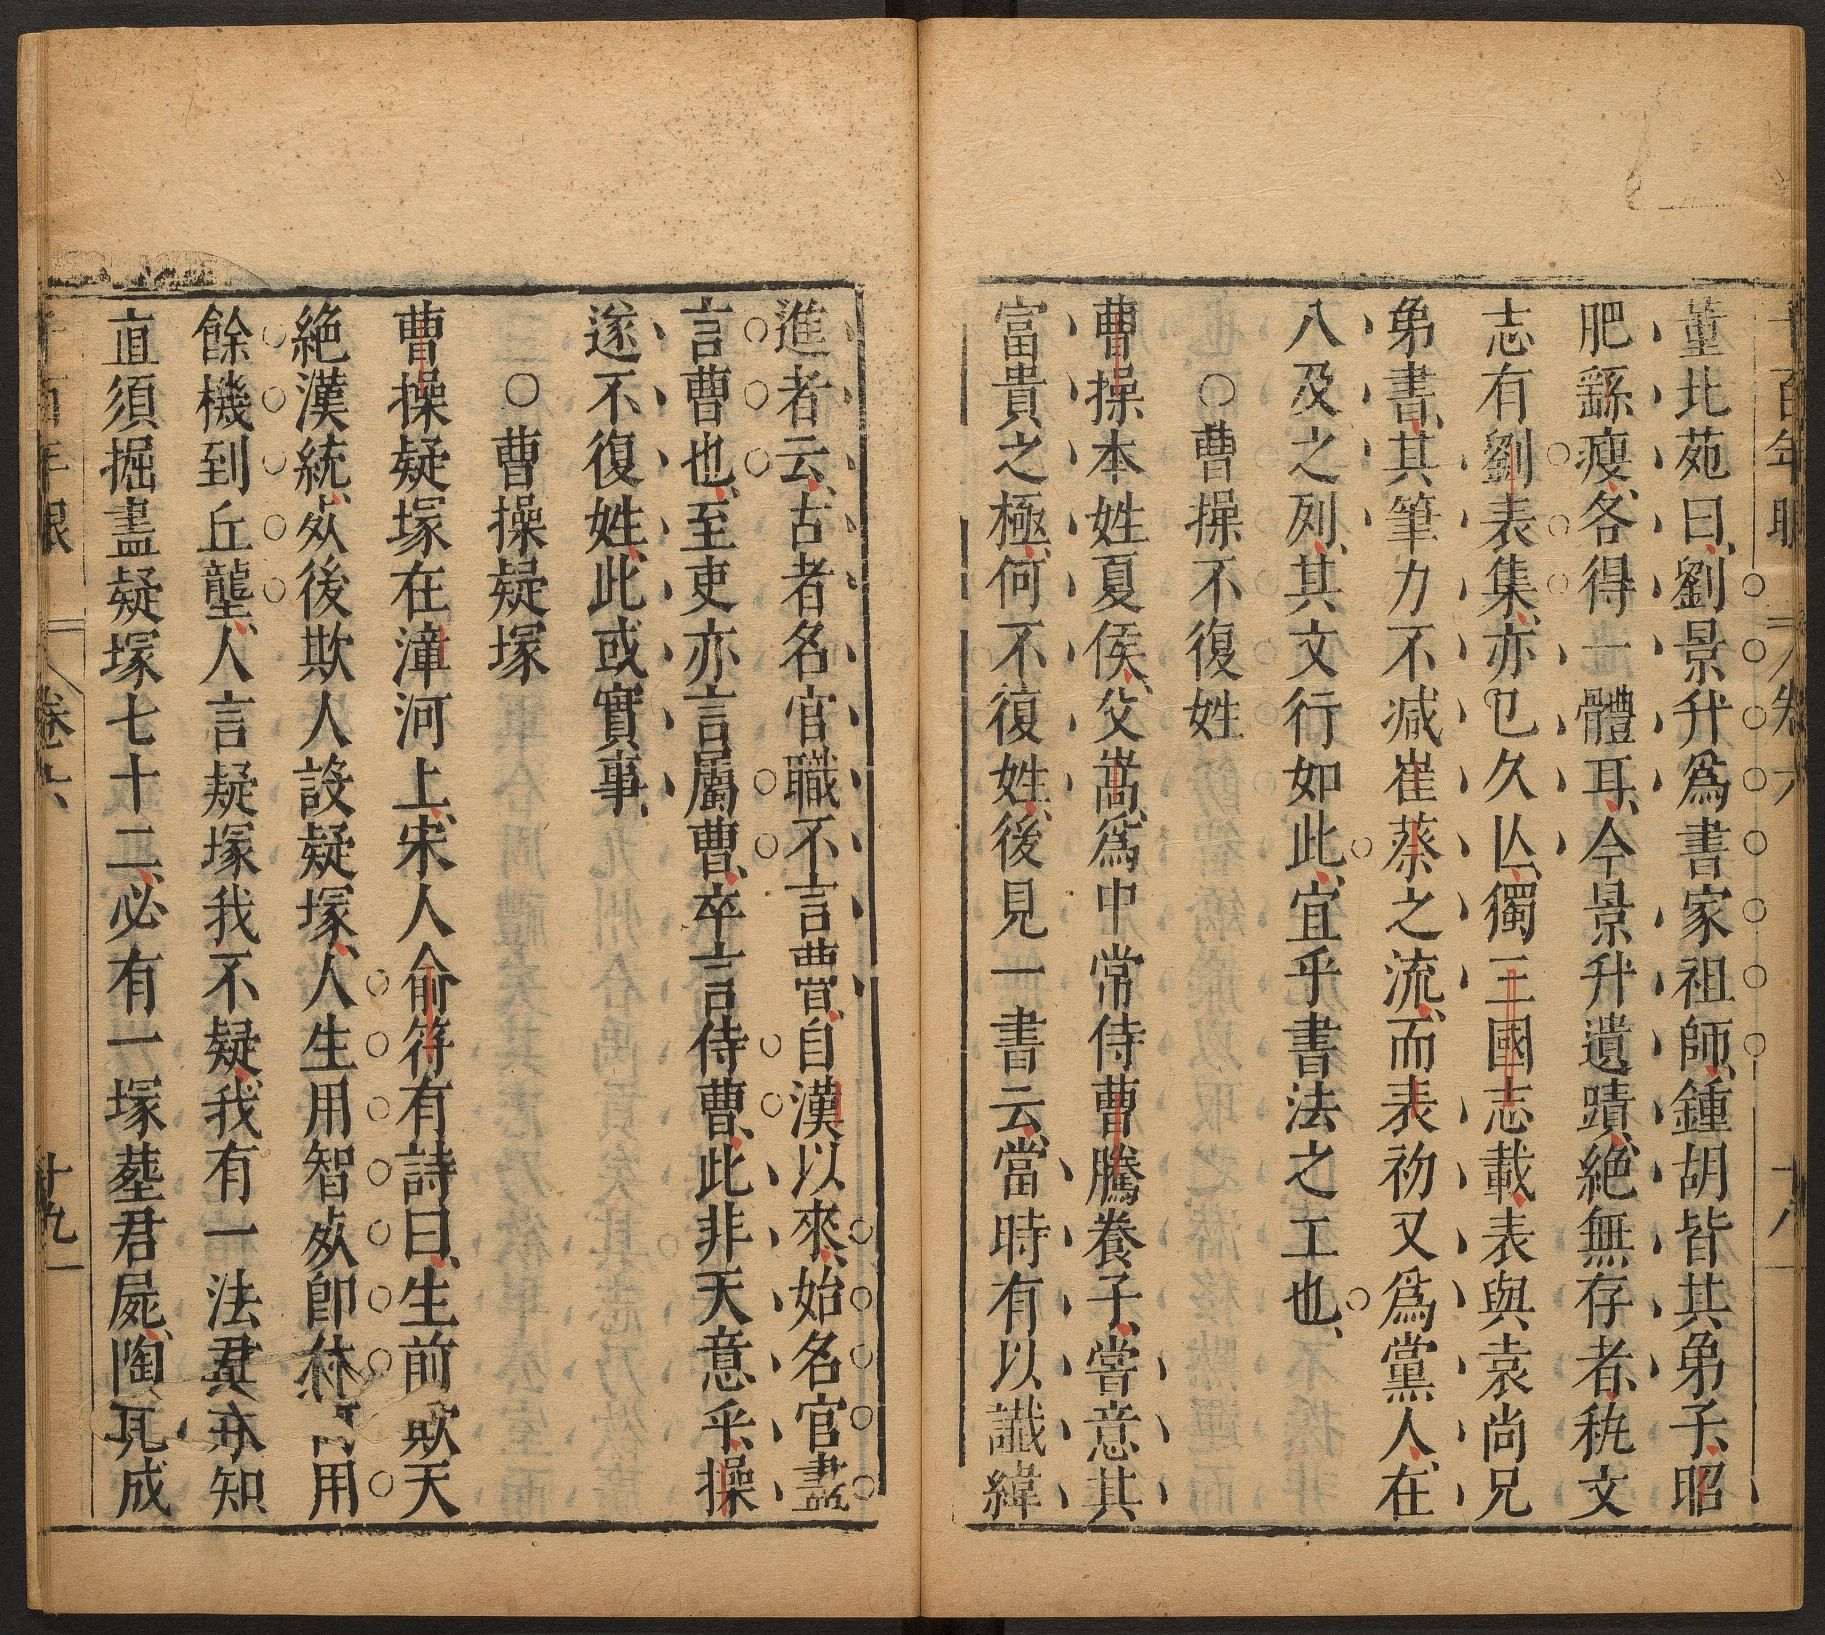 董北苑曰劉景升爲書家祖師鍾胡皆其弟子昭
肥繇瘦各得一體耳今景升遺蹟絕無存者秇文
志有劉表集亦已久亾獨三國志載表與袁尚兄
弟書其筆力不减崔蔡之流而表初又爲黨人在
八及之列其文行如此宜乎書法之工也
○曹操不復姓
曹操本姓夏侯父嵩爲中常侍曹騰養子嘗意其
富貴之極何不復姓後見一書云當時有以讖緯
進者云古者名官職不言曹自漢以來始名官盡
言曹也至吏亦言屬曹卒言侍曹此非天意乎操
遂不復姓此或實事
○曹操疑塚
曹操疑塚在漳河上宋人俞符有詩曰生前欺天
絕漢統死後欺人設疑塚人生用智死卽休何用
餘機到丘壟人言疑塚我不疑我有一法君未知
直須掘盡疑塚七十二必有一塚塟君屍陶九成
千百年眼 卷六 十九